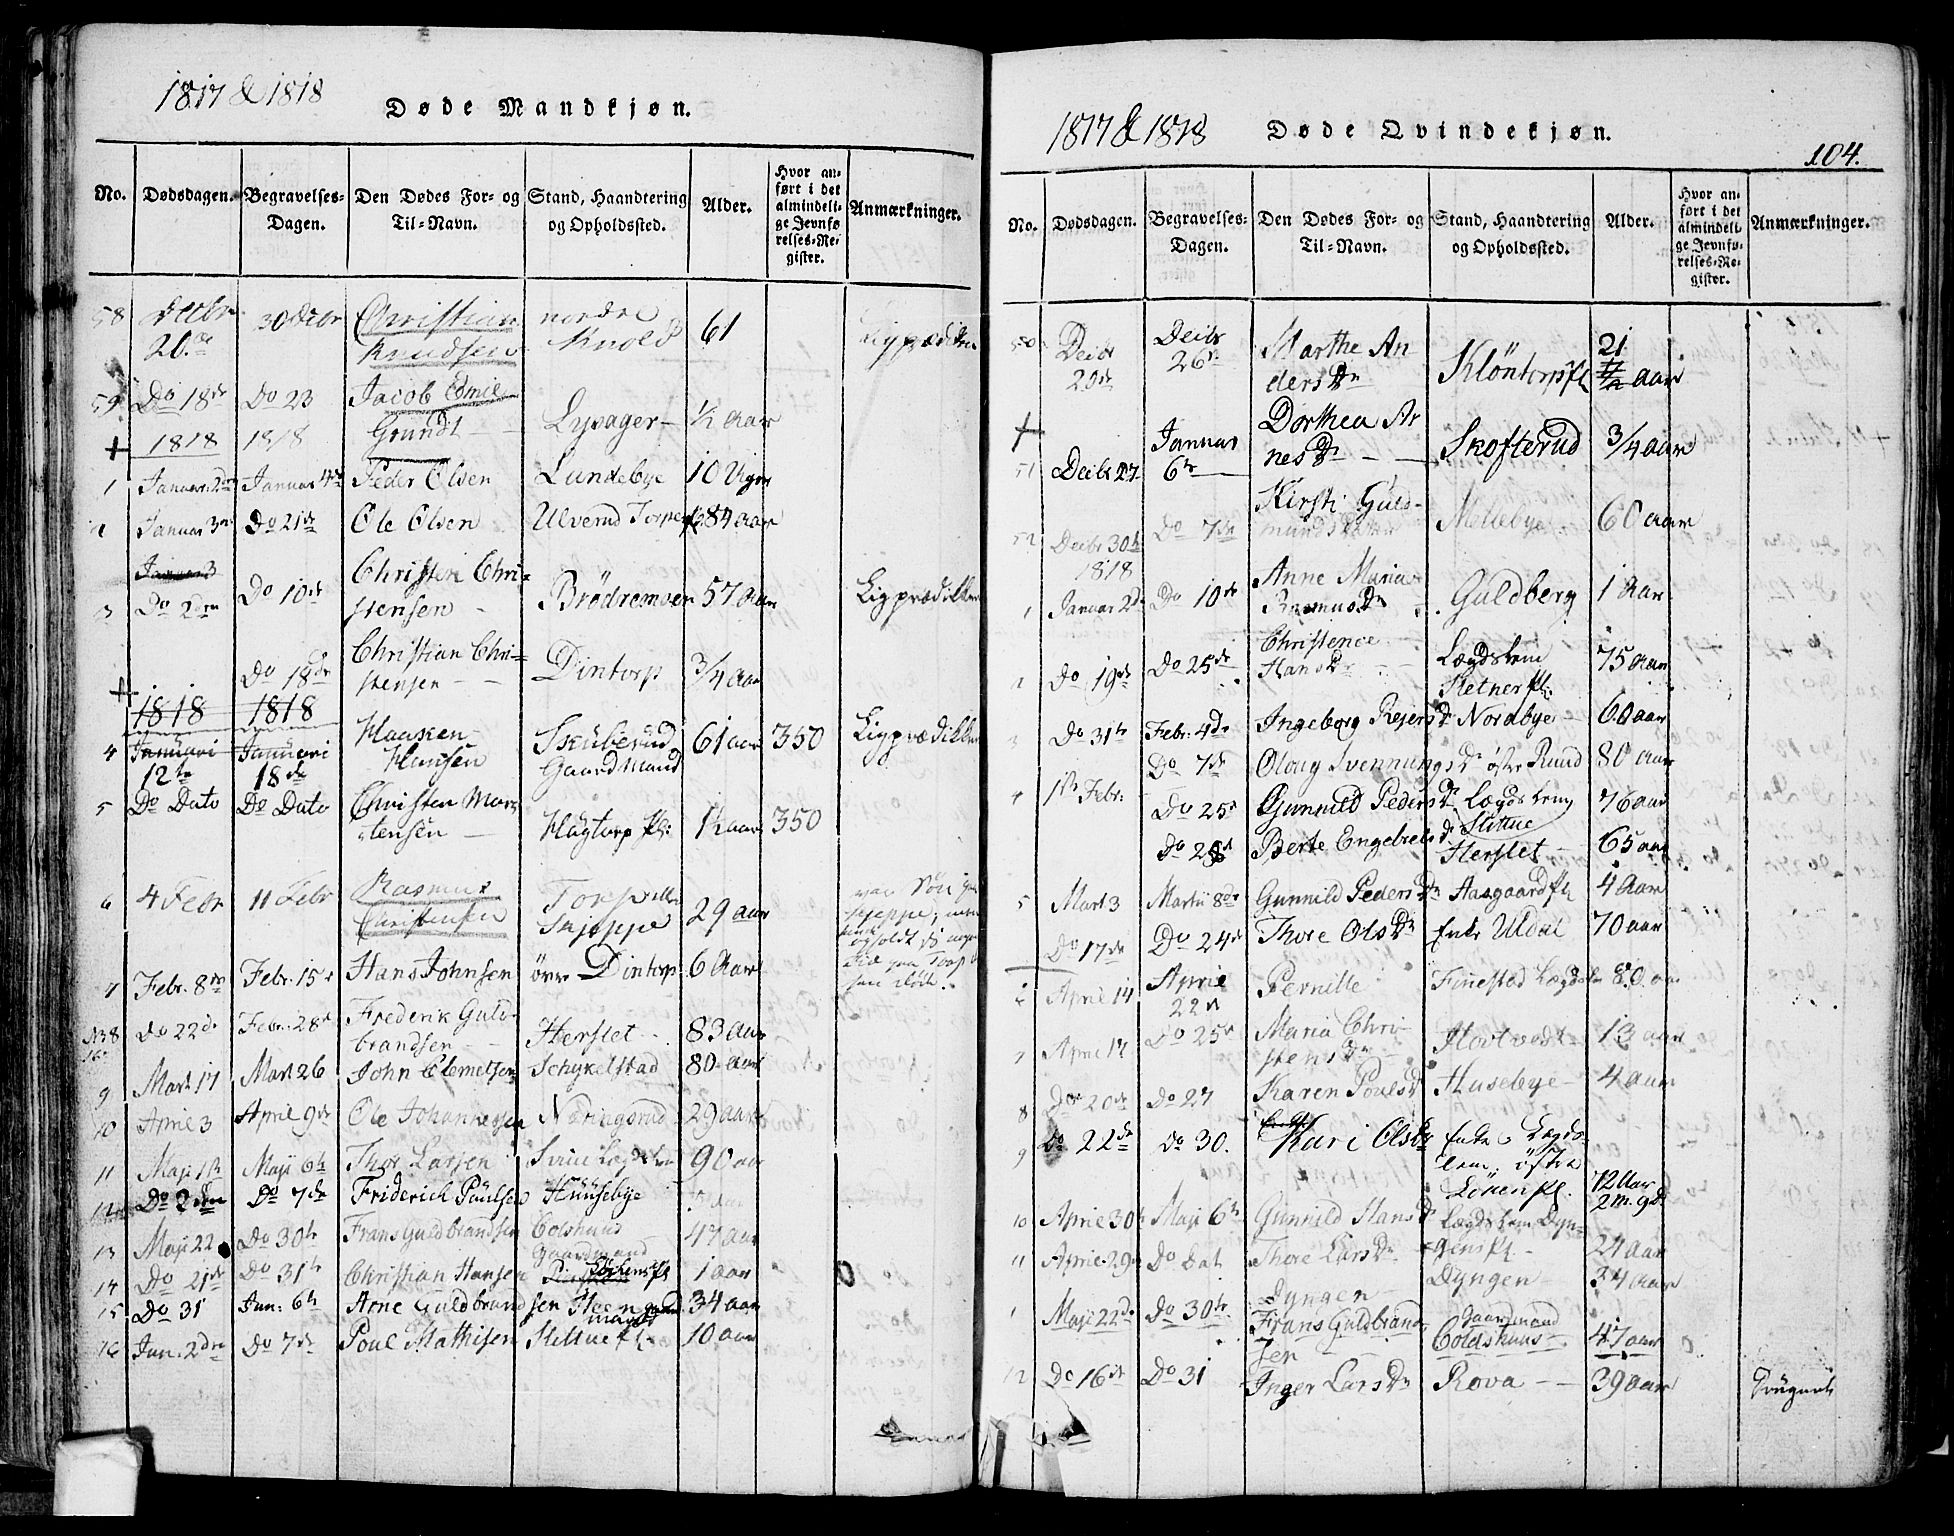 1817 & 1818
Døde Mandkjøn.
No. Dødsdagen. Begravelses-Dagen. Den Dødes For- og Til-Navn. Stand, Haandtering og Opholdssted. Alder. Hvor anført i det almindelige Jevnførelses-Register. Anmærkninger.
58 Decbr 20de 30 Decbr Christian Knudsen nordre Knold 61 Ligprædiken
59 Do 18de Do 23 Jacob Emil Grundt Lysager 1/2 Aar
1818 1818
1 Januar 2den Januar 4de Peder Olsen Lundebye 10 Uger
2 Januar 3die Do 21de Ole Olsen Ulverud Torpet 84 aar
3 Do 2den Do 10de Christen Christensen Brödremoen 57 Aar Ligprædiken
Do 18de Christian Christensen Dintorp 3/4 Aar
1818 1818
4 Januari 12te Januari 18de Haaken Hansen Skuberud Gaardmand 61 aar 350 Ligprædiken
5 Do Dato Do Dato Christen Mortensen Hagtorp Pl: 1 1/2 aar 350
6 4 Febr 11 Febr Rasmus Christensen Skjeppe 29 aar
7 Febr. 8de Febr. 15de Hans Johnsen övre Dintorp 6 Aar
8 Do 22de Febr. 28de Frederik Guldbrandsen Herslet 83 aar
9 Mart 17 Mart 26 John Clemetsen Schykelstad 80 aar
10 April 3 April 9de Ole Johannessen Næringsrud 29 aar
11 Maji 1ste Maji 6te Thor Larsen 90 aar
12 Do 2den Do 7de Friderich Poulsen Huusebye
13 Maji 22 Do 30te Frans Guldbrandsen Colshuus Gaardmand 47 aar
14 Do 21de Do 31te Christian Hansen 1 aar
15 Do 31 Jun: 6te Arne Guldbrandsen Steen 34 aar
16 Jun: 2den Do 7de Poul Mathisen Mellue Pl 10 aar
1817 & 1818
Døde Qvindekjøn.
104.
No. Dødsdagen. Begravelses-Dagen. Den Dødes For- og Til-Navn. Stand, Haandtering og Opholdssted. Alder. Hvor anført i det almindelige Jevnførelses-Register. Anmærkninger.
50 Decbr 20de Decbr 26de Marthe Andersdr Klöntorp Pl 21 aar
51 Decbr 27 Januar 6te Dorthea Arnesdr Skofterud 3/4 aar
52 Decbr 30te Do 7de Kirsti Guldmundsdatter Mellebye 60 aar
1818
1 Januar 2de Do 10de Anne Maria Rasmusdr Guldberg 1 Aar
2 Do 19de Do 25de Christence Hansdr Lægdslem Ketner Pl: 75 Aar
3 Do 31te Febr. 4de Ingeborg Rejersdr Nordbye 60 aar
Do 7de Oloug Svenningsdr östre Ruud 80 aar
4 1ste Febr: Do 25de Gunnild Pedersdr Lægdslem 76 aar
Do 28de Berte Engebretsdr Herslet 65 aar
5 Mart 3 Martii 8de Gunnild Pedersdr Aasgaard Pl 4 Aar
Do 17de Do 24de Thore Olsdr Enke Uldal 70 aar
6 April 14 April 22de Pernille Finestad Lægdslem 80 aar
7 April 17 Do 25de Maria Christensdr Hovtvedt 13 aar
8 Do 20de Do 27 Karen Poulsdr Husebye 4 aar
9 Do 22de Do 30. Kari Olsdr Enke Lægdslem: östre Lönen Pl. 72 Aar 2 m. 9 d.
10 April 30te Maji 6te Gunnild Hansdr Lægdslem Dyngens Pl
11 April 29de Do Dat Thore Larsdr Dyngen 34 aar
Maji 22de Do 30te Frans Guldbrandsen Gaardmand Coldshuus 47 aar
12 Do 16de Do 31 Inger Larsdr Rova 39 aar